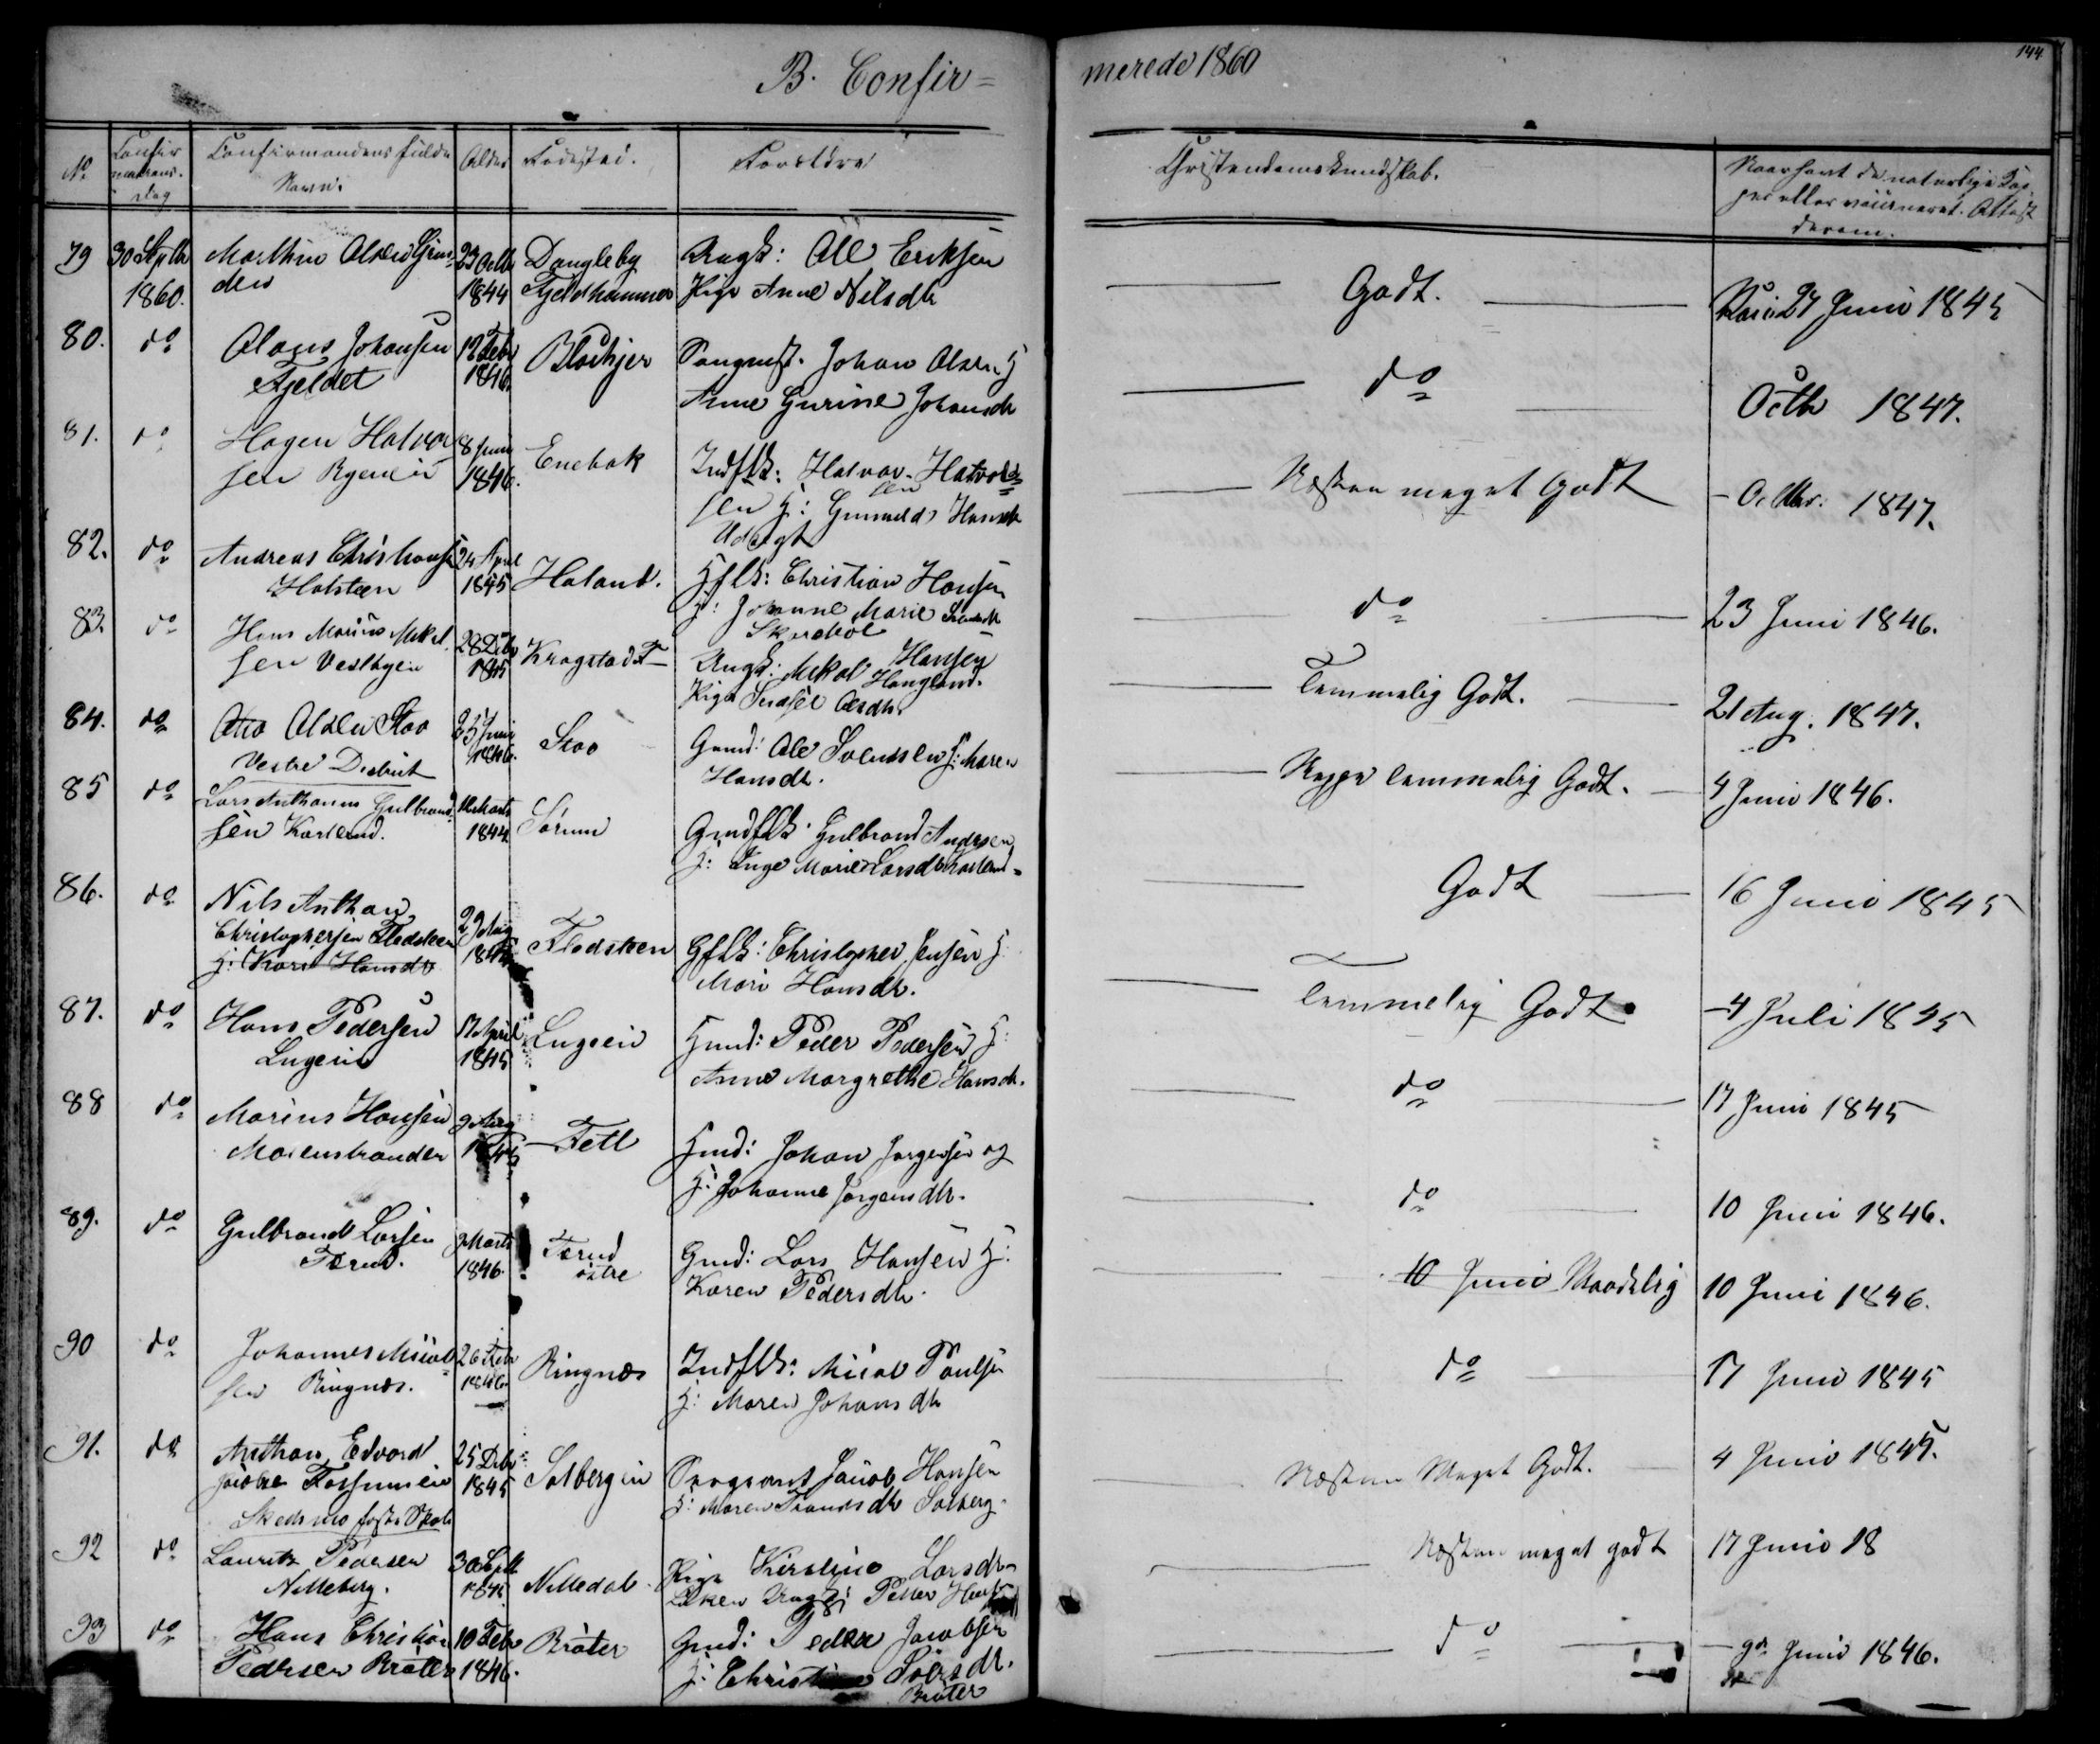 B. Confir=
merede 1860
144
No
Confir
mations.
dag
Confirmandens fulde
Navn.
Alder
Fødested.
Forældre
Christendomskundskab.
Naar havt de naturlige Kop-
per eller vaccineret. Attest
derom.
79
30 Septbr
1860.
Marthin Olsen
den
23 Octb
1844
Dangleby
Fjeldhammer
Ungk: Ole Eriksen
Pige Anne Nilsdtr
Godt.
27 Juni 1845
80.
do
Olaus Johansen
Fjeldet
12 Febr
1846.
Blakjer
Johan Olsen H
Anne Gurine Johansdtr
do
Octbr 1847.
81.
do
Hagen Halvor
sen Rgenein
8 Juni
1846.
Enebak
Indflk: Halvor Halvord=
sen
sen H: Gunnild Hansdtr
Octbr. 1847.
Næsten meget Godt
82.
do
Andreas Christians
Holsteen
24 April
1845
Holand.
Hflk: Christian Hansen
H: Johanne Marie
do
23 Juni 1846.
83.
do
Hans Marius Mikel
sen Vesbyen
28 Decbr
1845
Kragstad
Ungk: Mikal Hansen
Haugland.
Pige Olsdtr.
Temmelig Godt.
21 Aug. 1847.
84.
do
Otto Olsen Stoo
Vestre District
25 Juni
1846.
Stoo
Gmd: Ole Svendsen H: Maren
Hansdtr.
Neppe temmelig Godt.
4 Juni 1846.
85
do
Lars Anthonius Gulbrand
sen Karlerud.
Marts
1844.
Sørum
Gmdflk: Gulbrand Andersen
H: Inge Marie Larsdtr Karlerud
Godt
16 Juni 1845
86.
do
Nils Anthon
Christophersen Fladsteen
H: Kari Hansdtr
29 Aug
Fladsteen
Gflk: Christopher Jensen H
Mari Hansdtr.
Temmelig Godt.
4 Juli 1845
87.
do
Hans Pedersen
Lugein
17 April
1845
Lugein
Hmd: Peder Pedersen H:
Anne Margrethe Hansdtr.
do
17 Juni 1845
88
do
Marius Hansen
Moienstranden
9 Aug
Fetl
Hmd: Johan Jørgensen og
H: Johanne Jørgensdtr.
do
10 Juni 1846.
89.
do
Gulbrand Larsen
Tærud.
9 Marts
1846.
Tærud
østre
Gmd: Lars Hansen H:
Karen Pedersdtr.
10 Juni Maadelig
10 Juni 1846.
90
do
Johannes Micol
sen Ringnæs.
26 Febr
1846
Ringnæs
Indflk: Micol Poulsen
H: Maren Johansdtr
do
17 Juni 1845
91.
do
Anthon Edvard
Jacobse Fossumeie
Skedsmo faste Skole
25 Debr
1845
Solbergeie
Jacob Hansen
H: Maren Solberg
Næsten Meget Godt.
4 Juni 1845.
92
do
Lauritz Pedersen
Nilleberg.
30 Septb
1845
Nittedal.
Pige Kirstine Larsdtr
Løken Ungk: Peder
Næsten meget godt
17 Juni 18
93
do
Hans Christian
Pedersen Bråter
10 Febr
1846.
Bråter
Gmd: Peder Jacobsen
H: Sversdtr.
Bråter
do
9de Juni 1846.